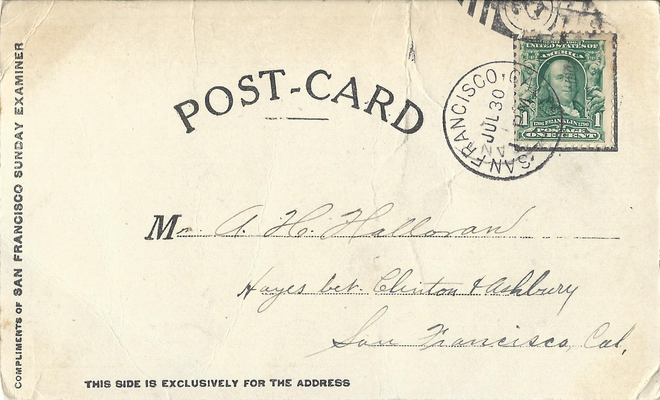 COMPLIMENTS OF SAN FRANCISCO SUNDAY EXAMINER
POST-CARD
SAN FRANCISCO, CAL
JUL 30
PM
UNITED STATES OF
AMERICA
1 FRANKLIN 1
POSTAGE
ONE CENT
Mr. A. H. Halloran
Hayes bet. Clinton & Ashbury
San Francisco, Cal.
THIS SIDE IS EXCLUSIVELY FOR THE ADDRESS